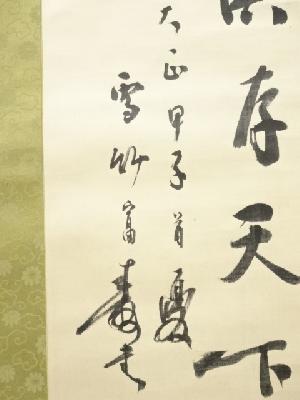 存天下
大正甲子首夏
雪竹富寿